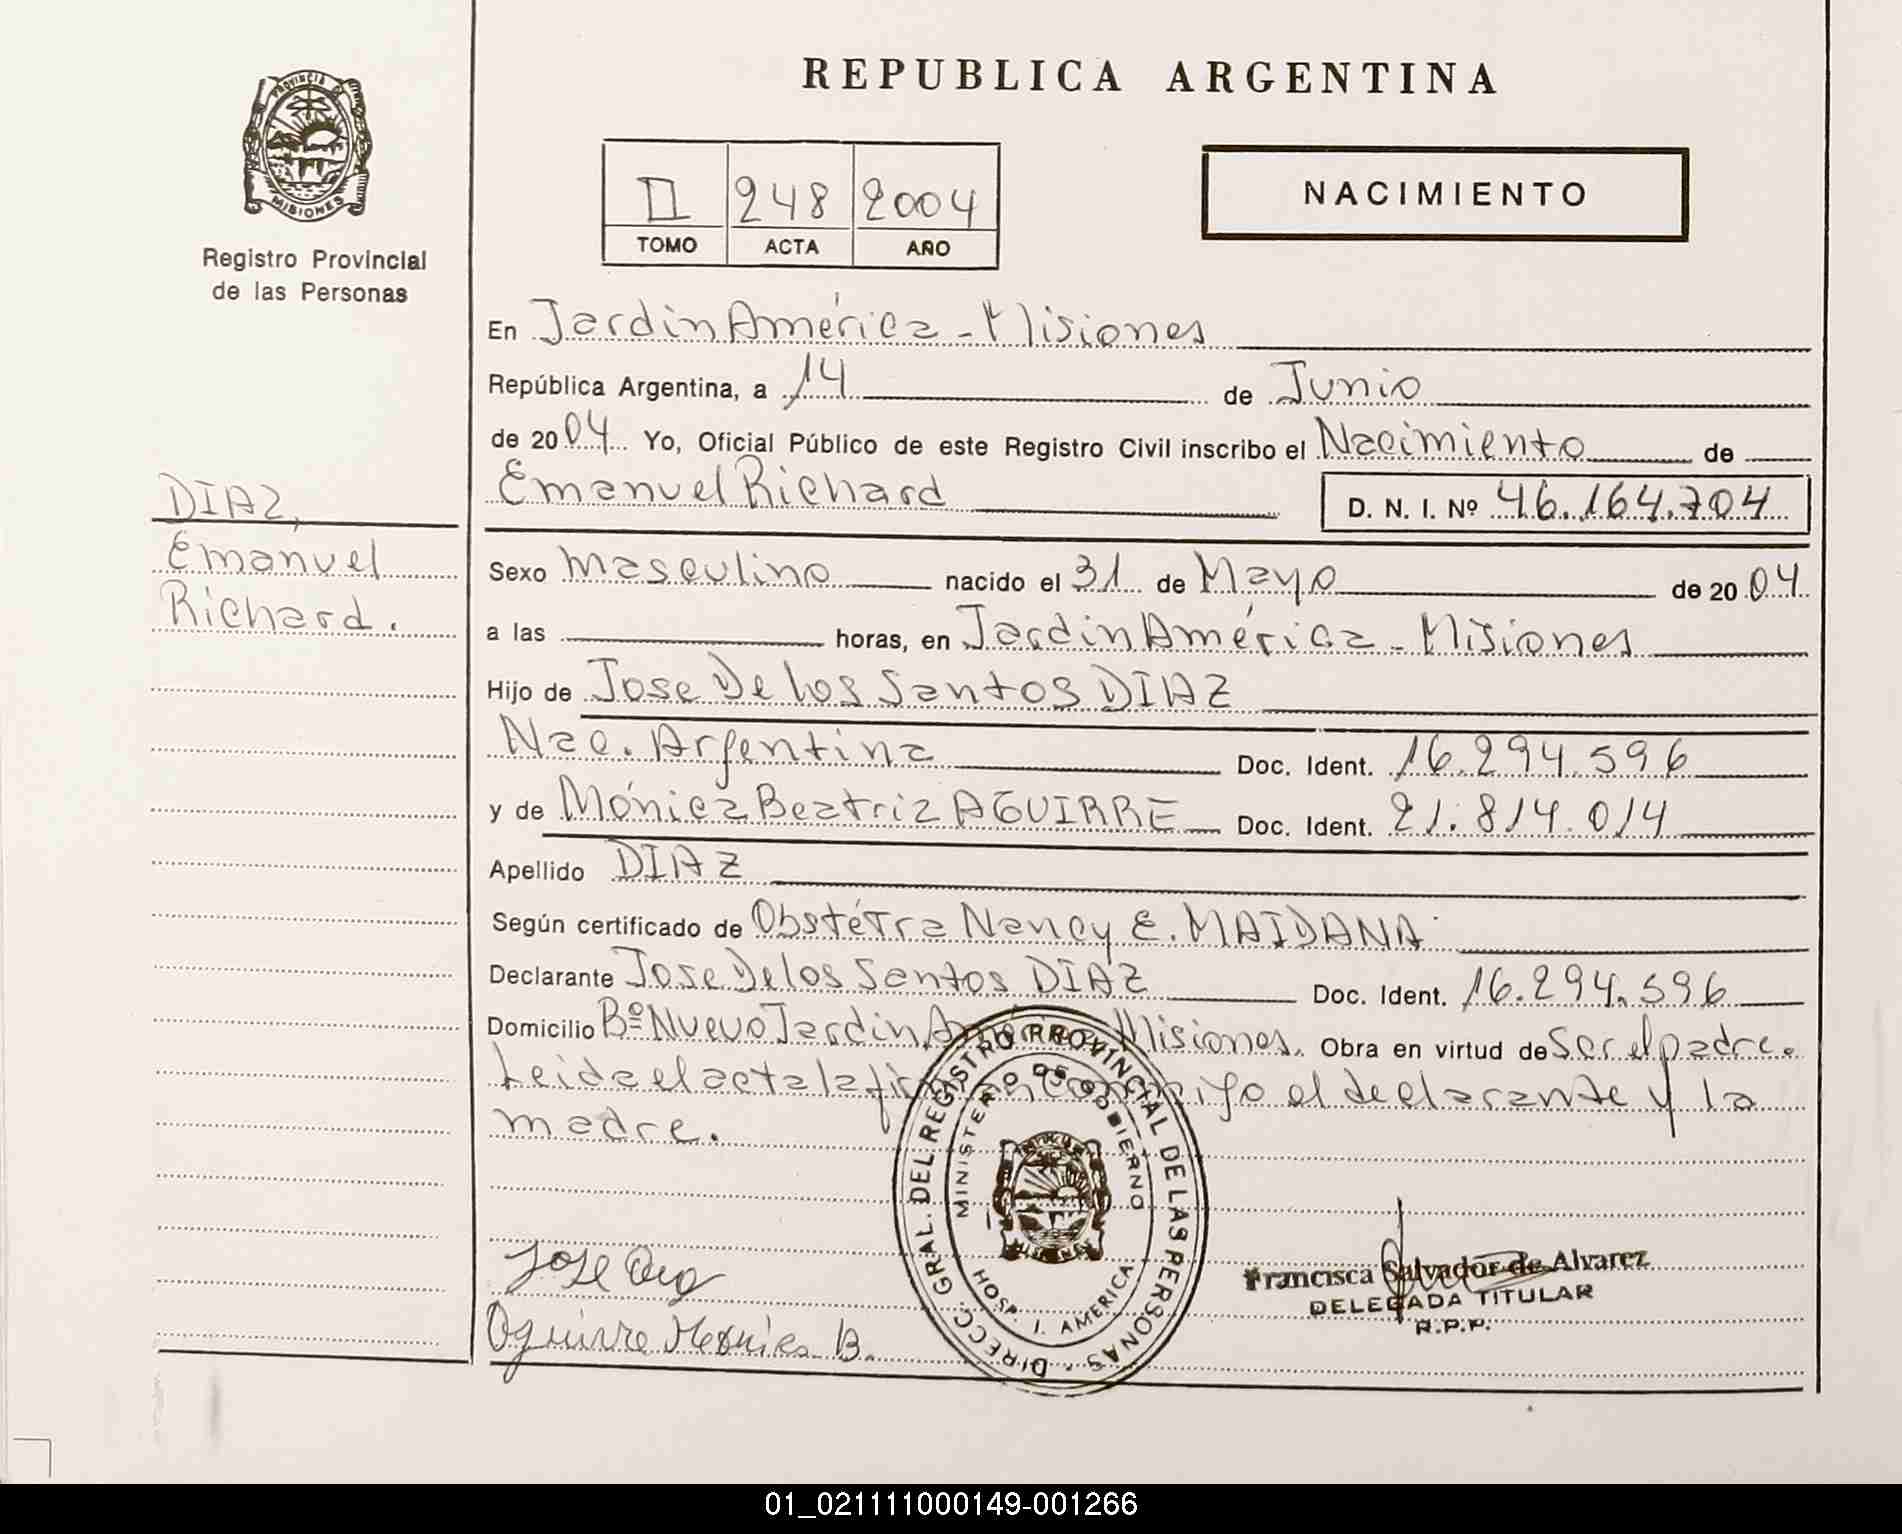 PROVINCIA DE
MISIONES
Registro Provincial
de las Personas
REPUBLICA ARGENTINA
II 248 2004
TOMO ACTA AÑO
NACIMIENTO
En Jardin América - Misiones
República Argentina, a 14 de Junio
de 2004 Yo, Oficial Público de este Registro Civil inscribo el Nacimiento de
Emanuel Richard D. N. I. Nº 46.164.704
DIAZ,
Emanuel
Richard.
Sexo masculino nacido el 31 de Mayo de 2004
a las horas, en Jardin América - Misiones
Hijo de Jose De los Santos DIAZ
Nac. Argentina Doc. Ident. 16.294.596
y de Mónica Beatriz AGUIRRE Doc. Ident. 21.814.014
Apellido DIAZ
Según certificado de Obstétra Nancy E. MAIDANA
Declarante Jose De los Santos DIAZ Doc. Ident. 16.294.596
Domicilio Bº Nuevo Jardin América Misiones. Obra en virtud de Ser el padre.
Leida el acta la firman conmigo el declarante y la
madre.
DIRECC. GRAL. DEL REGISTRO PROVINCIAL DE LAS PERSONAS
MINISTERIO DE GOBIERNO
HOSP. J. AMERICA
Jose
Aguirre Monica B.
Francisca Salvador de Alvarez
DELEGADA TITULAR
R.P.P.
01_021111000149-001266